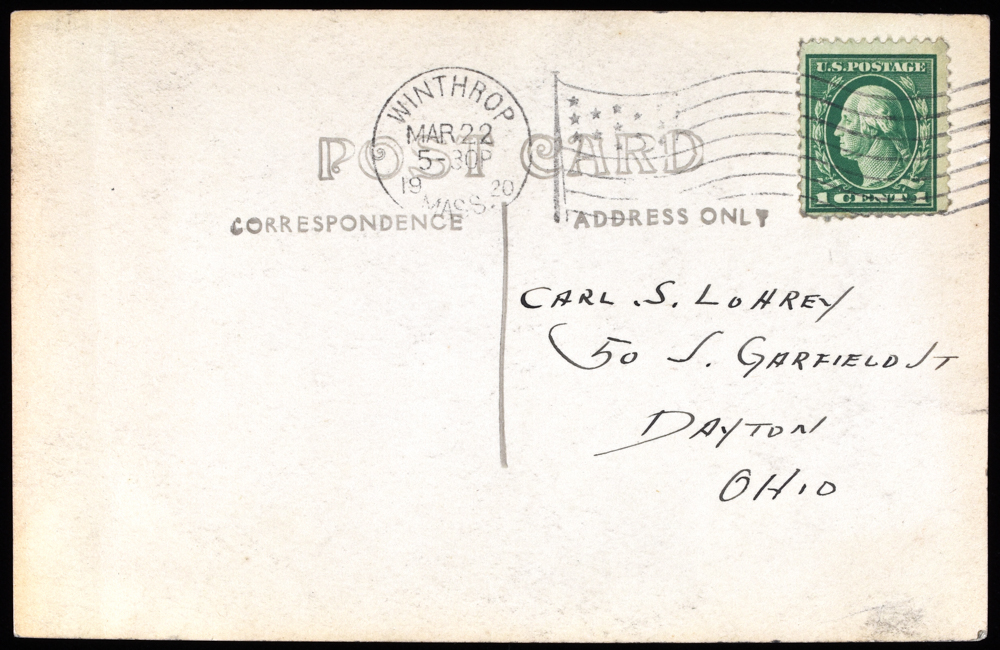 WINTHROP
MAR 22
5-30P
19 20
MASS.
U.S. POSTAGE
1 CENT 1
POST CARD
CORRESPONDENCE
ADDRESS ONLY
CARL .S. LOHREY
50 S. GARFIELD ST
DAYTON
OHIO